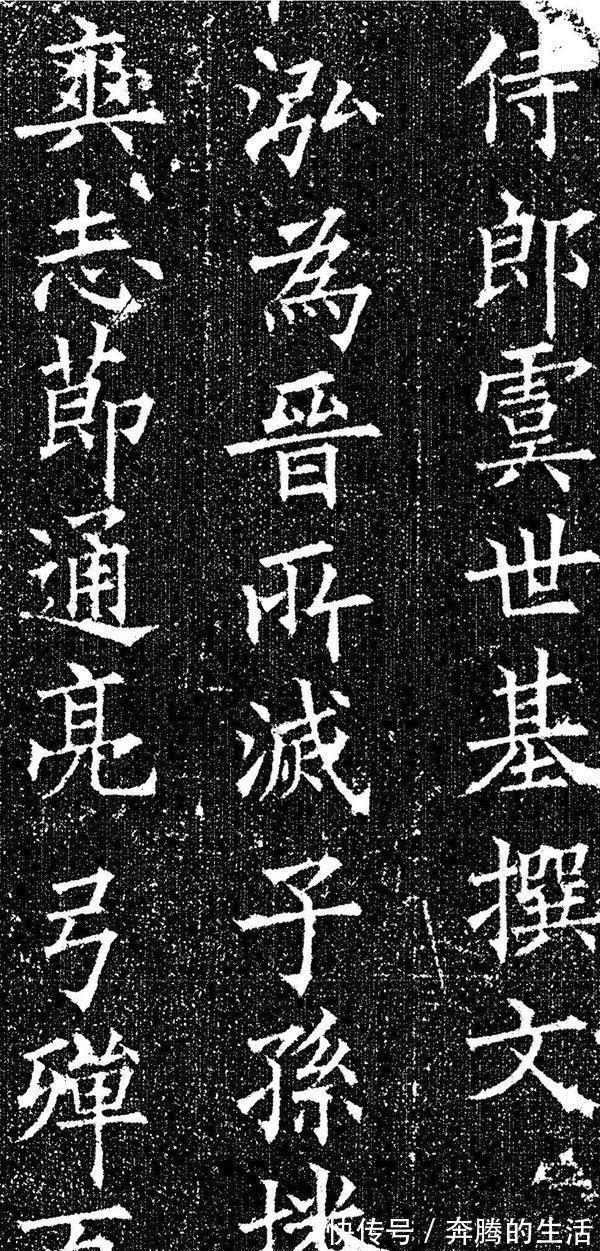 侍郎虞世基撰文
泓為晉所滅子孫
爽志節通亮弓殫百
快传号 / 奔腾的生活